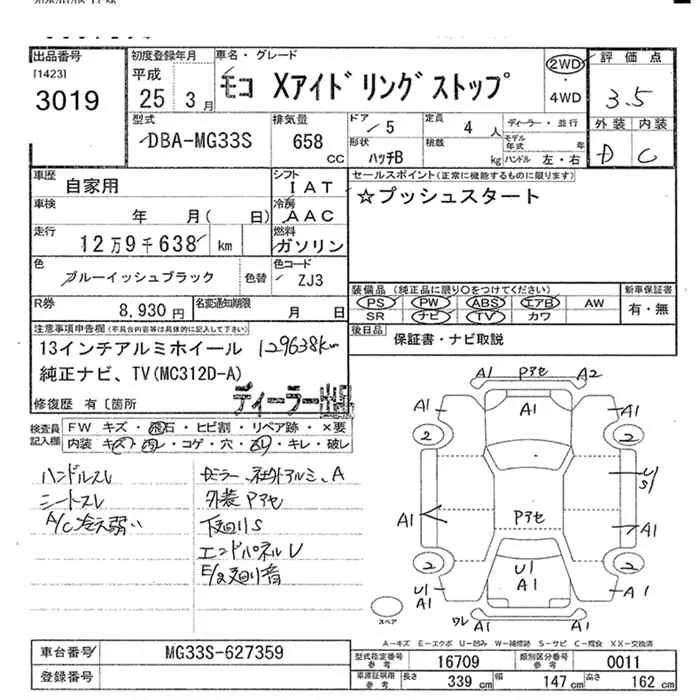 出品番号
[1423]
3019
初度登録年月
平成
25 3月
車名・グレード
モコ Xアイドリングストップ
2WD
・
4WD
評価点
3.5
外装 内装
D C
型式
DBA-MG33S
排気量
658
CC
ドア
5
形状
ハッチB
定員
4人
積載
kg
ディーラー・並行
モデル年式 年
ハンドル 左・右
車歴
自家用
シフト
IAT
車検
年 月( 日)
冷房
AAC
走行
12万9千638 km
燃料
ガソリン
色
ブルーイッシュブラック
色替
色コード
ZJ3
R券
8,930円
名変通知期限
月 日
セールスポイント(正常に機能するものに限ります)
☆プッシュスタート
装備品(純正品に限り○をつけてください)
PS PW ABS エアB AW
SR ナビ TV カワ
新車保証書
有・無
後日品
保証書・ナビ取説
注意事項申告欄(不具合内容等は具体的に記入して下さい)
13インチアルミホイール 129638km
純正ナビ、TV(MC312D-A)
ディーラー
修復歴 有〔箇所
検査員記入欄
FW キズ・飛石・ヒビ割・リペア跡・×要
内装 キズ・汚レ・コゲ・穴・スレ・キレ・破レ
ハンドルスレ
シートスレ
A/C冷え弱い
社外アルミ、A
外装Pアセ
下廻りS
エンドパネルU
A1 Pアセ A2
A1 A1 A1
2 2
U1
S1
A1 Pアセ A1
2 2
U1
A1
U1
A1
A1
ワレ A1
スペア
A-キズ E-エクボ U-凹み W-補修跡 S-サビ C-腐食 XX-交換済
車台番号
MG33S-627359
登録番号
型式指定番号
参考
16709
類別区分番号
参考
0011
車庫証明用
参考
長さ 339 cm 幅 147 cm 高さ 162 cm